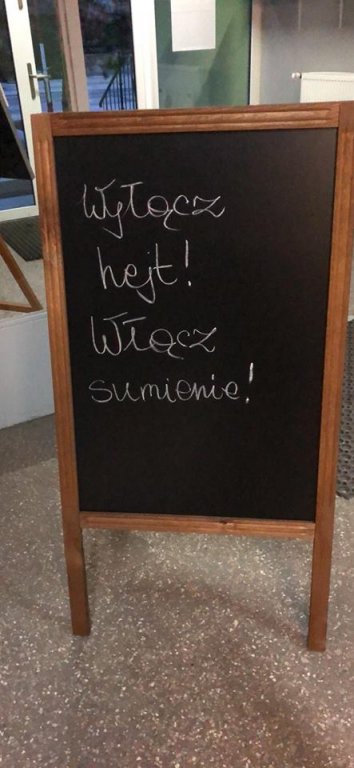 Wyłącz
hejt!
Włącz
sumienie!